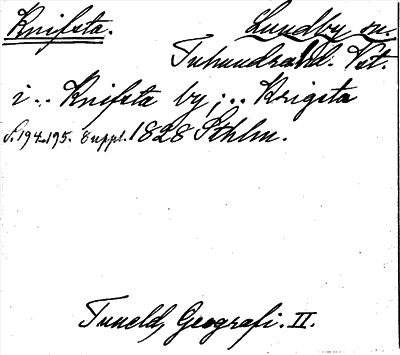 Knifsta. Lundby sn.
Tuhundra hd. Vstm.
i .. Knifsta by; .. Krigsta
S. 194-195. Suppl. 1828 Sthlm.
Tuneld, Geografi. II.